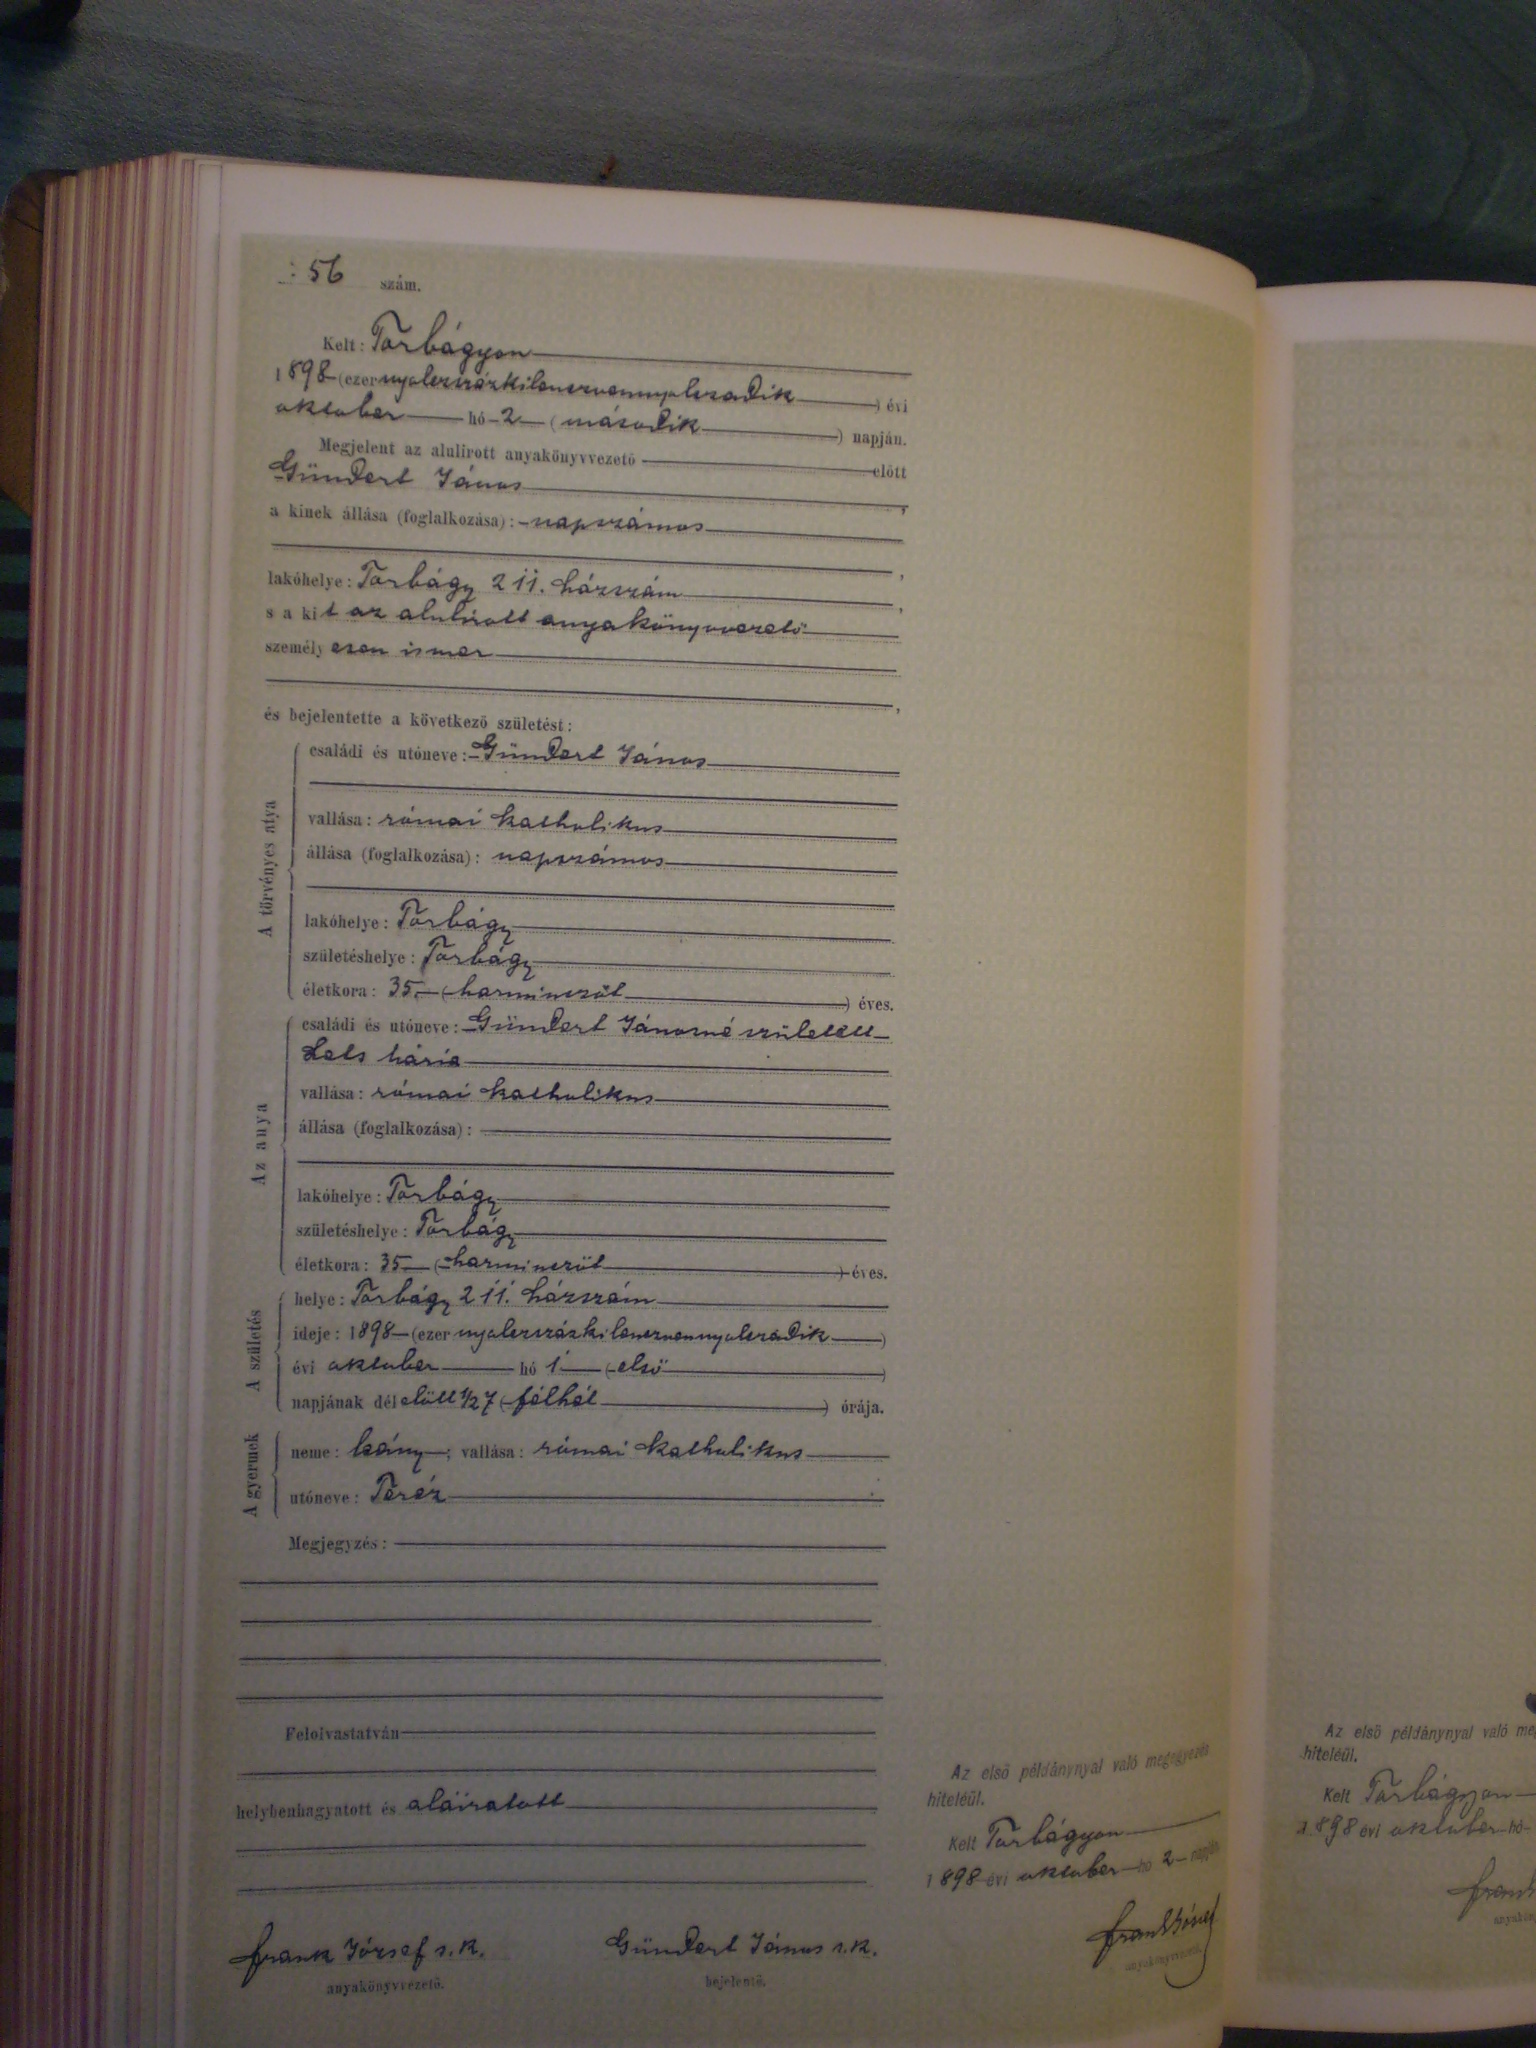 56 szám.
Kelt: Torbágyon
1898 (ezernyolczszázkilenczvennyolczadik) évi
oktober hó 2 (második) napján.
Megjelent az alulirott anyakönyvvezető előtt
Gündert János,
a kinek állása (foglalkozása): napszámos
lakóhelye: Torbágy 211. házszám,
s a kit az alulirott anyakönyvvezető
személyesen ismer,
és bejelentette a következő születést:
A törvényes atya
családi és utóneve: Gündert János
vallása: római katholikus
állása (foglalkozása): napszámos
lakóhelye: Torbágy
születéshelye: Torbágy
életkora: 35 (harminczöt) éves.
Az anya
családi és utóneve: Gündert Jánosné született
Mária
vallása: római katholikus
állása (foglalkozása):
lakóhelye: Torbágy
születéshelye: Torbágy
életkora: 35 (harminczöt) éves.
A születés
helye: Torbágy 211. házszám
ideje: 1898 (ezernyolczszázkilenczvennyolczadik)
évi oktober hó 1 (első)
napjának délelőtt 1/2 7 (félhét) órája.
A gyermek
neme: leány; vallása: római katholikus
utóneve: Teréz
Megjegyzés:
Felolvastatván
helybenhagyatott és aláiratott
Frank József s. k.
anyakönyvvezető.
Gündert János s. k.
bejelentő.
Az első példánynyal való megegyezés
hiteléül.
Kelt Torbágyon
1898 évi oktober hó 2 napján
Frank József
anyakönyvvezető.
Az első példánynyal való
hiteléül.
Kelt Torbágyon
1898 évi oktober hó